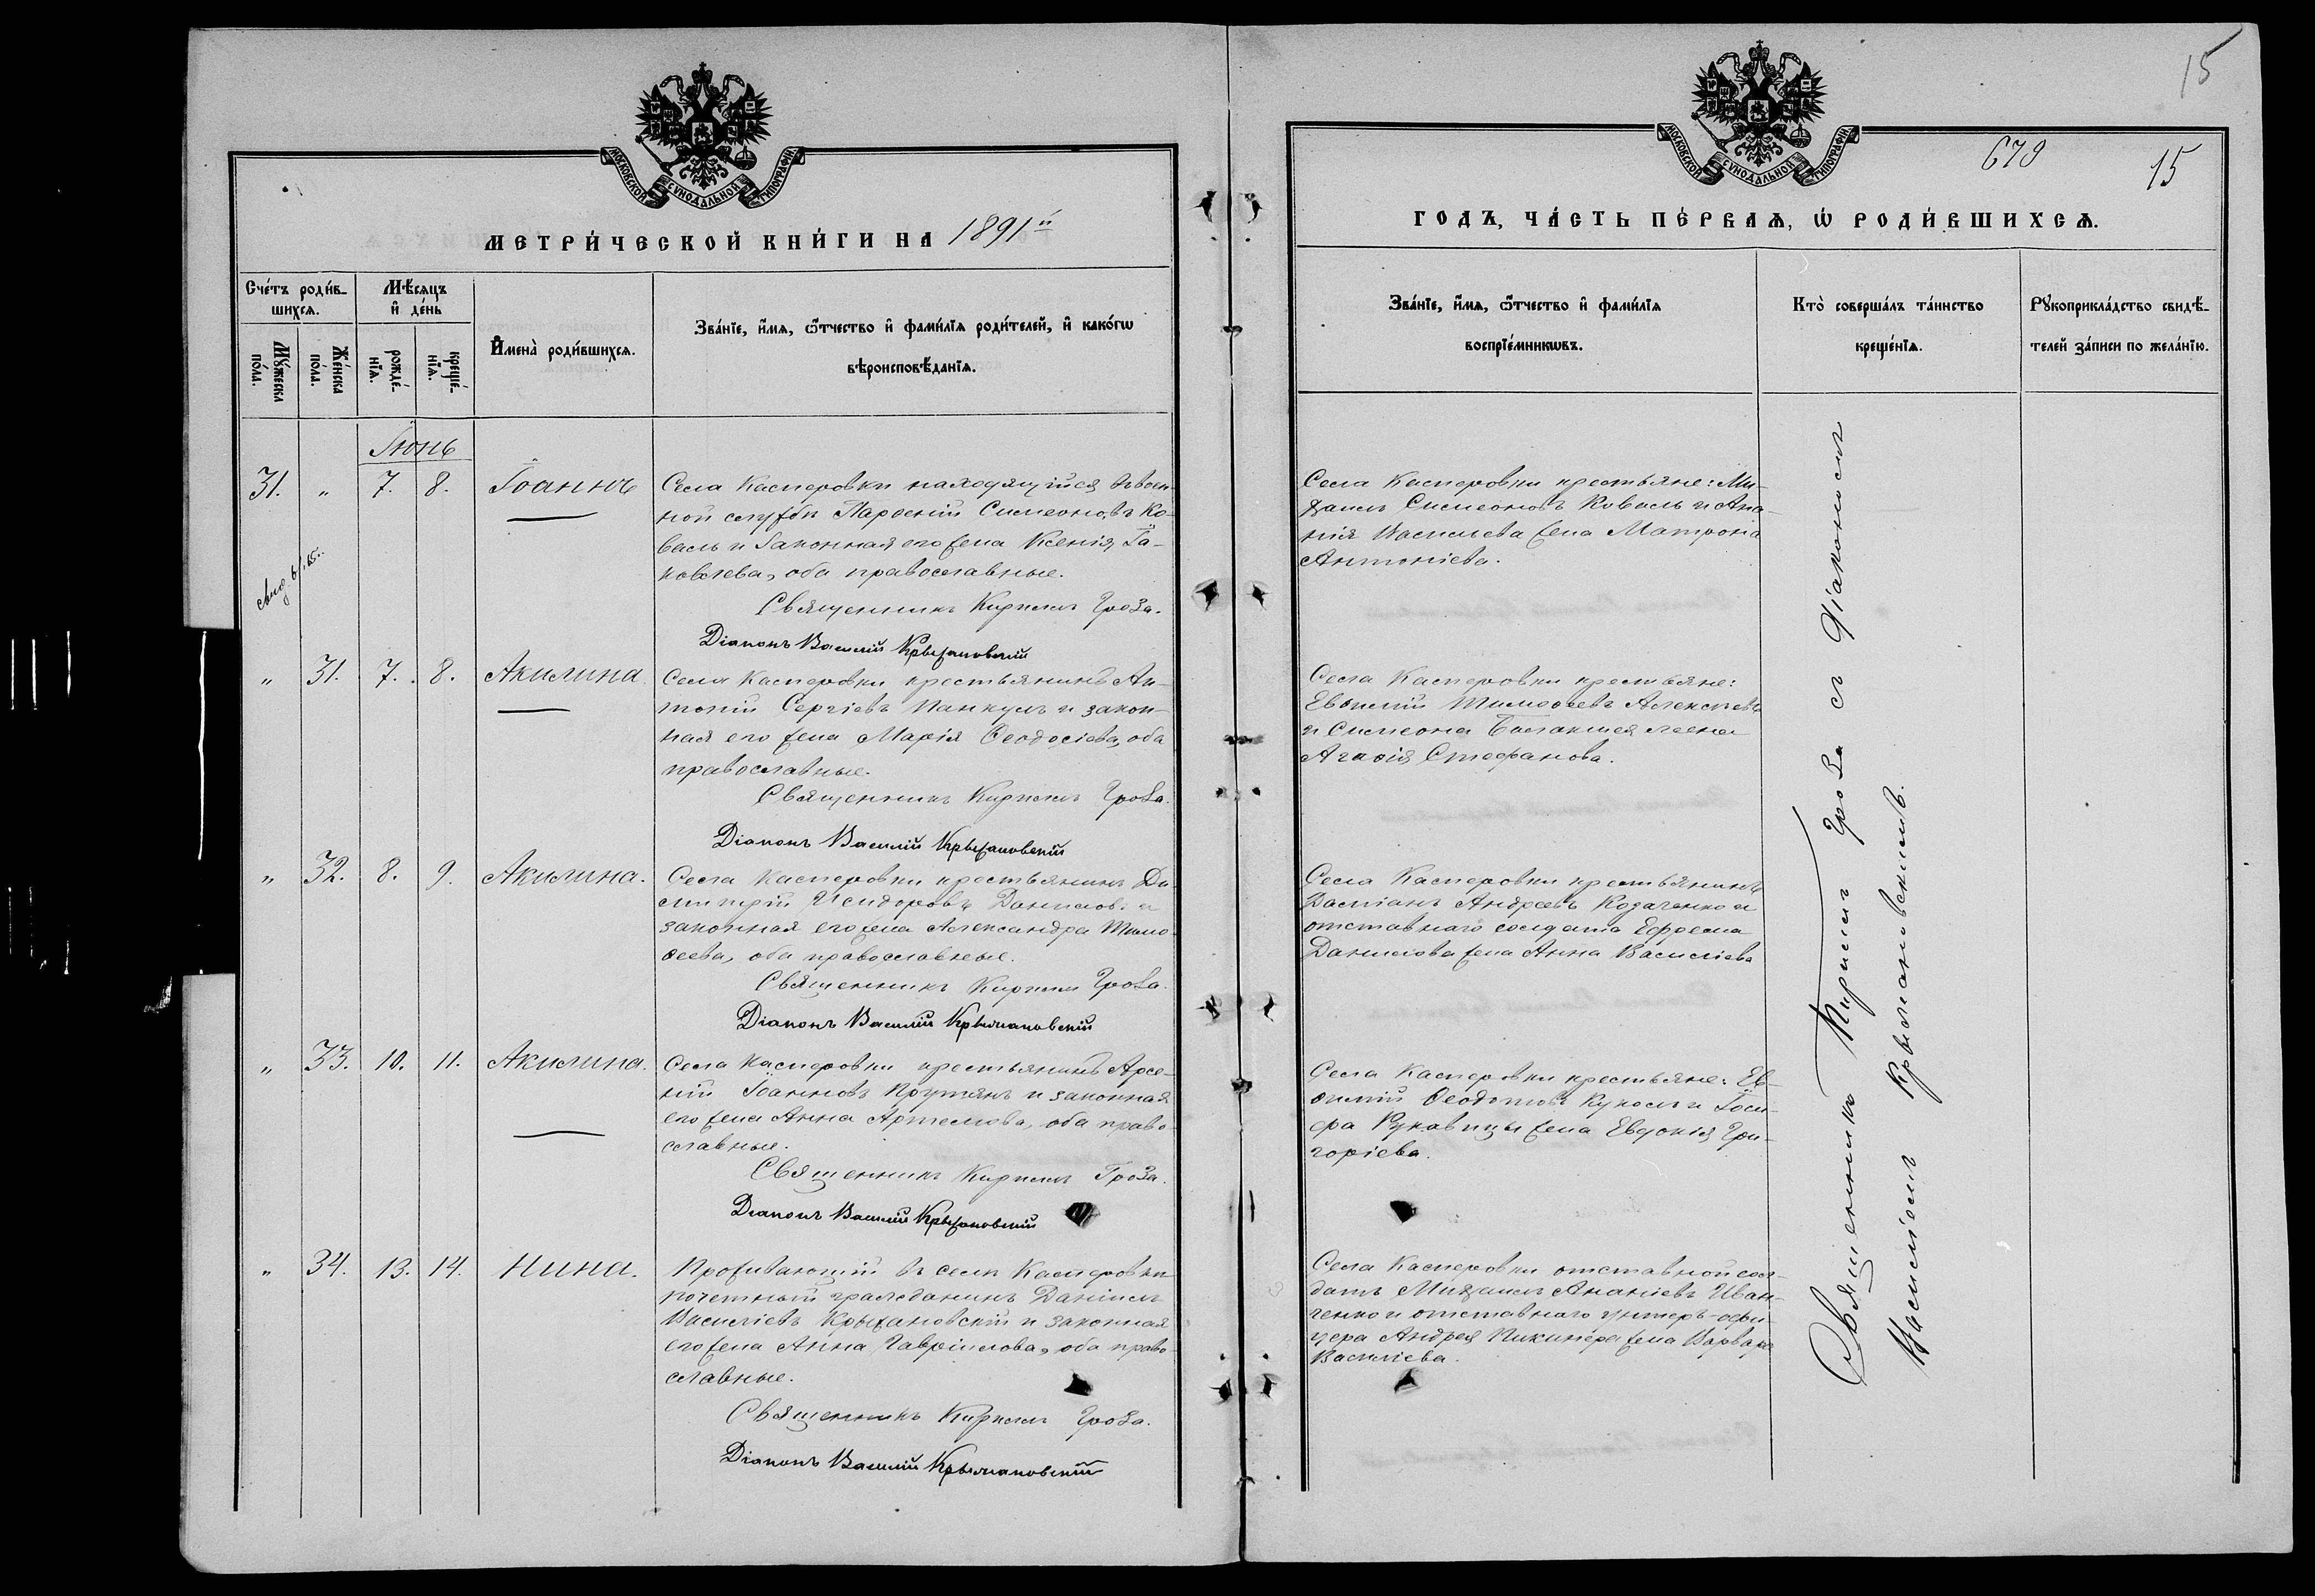 МОСКОВСКОЙ СѴНОДАЛЬНОЙ ТИПОГРАФІИ
МЕТРИ́ЧЕСКОЙ КНИ́ГИ НА 1891й
Сче́тъ роди́в-
шихсѧ.
Мꙋ́жеска
по́ла.
Же́нска
по́ла.
Мѣ́сяцъ
и҆ де́нь
рожде́-
нїѧ.
креще́-
нїѧ.
И҆мена̀ роди́вшихсѧ.
Зва́нїе, и҆́мѧ, ѻ҆́тчество и҆ фами́лїѧ роди́телей, и҆ како́гѡ
вѣроисповѣ́данїѧ.
Іюнь
31. " 7. 8. Іоаннъ
Села Касперовки находящійся въ воен-
ной службѣ Парѳеній Симеоновъ Ко-
валь и законная его жена Ксенія Іа-
ковлева, оба православные.
Священникъ Кирилъ Гроза.
Діаконъ Василій Крыжановскій
" 31. 7. 8. Акилина
Села Касперовки крестьянинъ Ан-
тоній Сергіевъ Панкулъ и закон-
ная его жена Марія Ѳеодосіева, оба
православные.
Священникъ Кирилъ Гроза.
Діаконъ Василій Крыжановскій
" 32. 8. 9. Акилина.
Села Касперовки крестьянинъ Ди-
митрій Исидоровъ Данилов. и
законная его жена Александра Тимо-
ѳеева, оба православные.
Священникъ Кирилъ Гроза.
Діаконъ Василій Крыжановскій
" 33. 10. 11. Акилина.
Села Касперовки крестьянинъ Арсе-
ній Іоанновъ Прутянъ и законная
его жена Анна Артемова, оба право-
славные.
Священникъ Кирилъ Гроза.
Діаконъ Василій Крыжановскій
" 34. 13. 14. Нина.
Проживающій въ селѣ Касперовкѣ
почетный гражданинъ Даніилъ
Василіевъ Крыжановскій и законная
его жена Анна Гавріилова, оба право-
славные.
Священникъ Кирилъ Гроза.
Діаконъ Василій Крыжановскій
15
679 15
МОСКОВСКОЙ СѴНОДАЛЬНОЙ ТИПОГРАФІИ
ГОДЪ, ЧА́СТЬ ПЕ́РВАѦ, Ѡ҆ РОДИ́ВШИХСѦ.
Зва́нїе, и҆́мѧ, ѻ҆́тчество и҆ фами́лїѧ
воспрїе́мникѡвъ.
Кто̀ соверша́лъ та́инство
креще́нїѧ.
Рꙋкоприкла́дство свидѣ́-
телей за́писи по жела́нїю.
Села Касперовки крестьяне: Ми-
хаилъ Симеоновъ Коваль и Ана-
нія Василіева жена Матрона
Антоніева.
Села Касперовки крестьяне:
Евѳимій Тимоѳеевъ Алексѣевъ
и Симеона жена
Агаѳія Стефанова.
Села Касперовки крестьянинъ
Андреевъ Козаченко и
отставнаго солдата Ефрема
Данилова жена Анна Василіева
Села Касперовки крестьяне: Ев-
ѳимій Ѳеодотовъ Куколъ и Іоси-
фа Рукавицы жена Евдокія Гри-
горіева.
Села Касперовки отставной сол-
датъ Михаилъ Ананіевъ Иван-
ченко и отставнаго унтеръ-офи-
цера Андрея Пикинера жена Варвара
Василіева.
Священникъ Кирилъ Гроза съ Діакономъ
Василіемъ Крыжановскимъ.